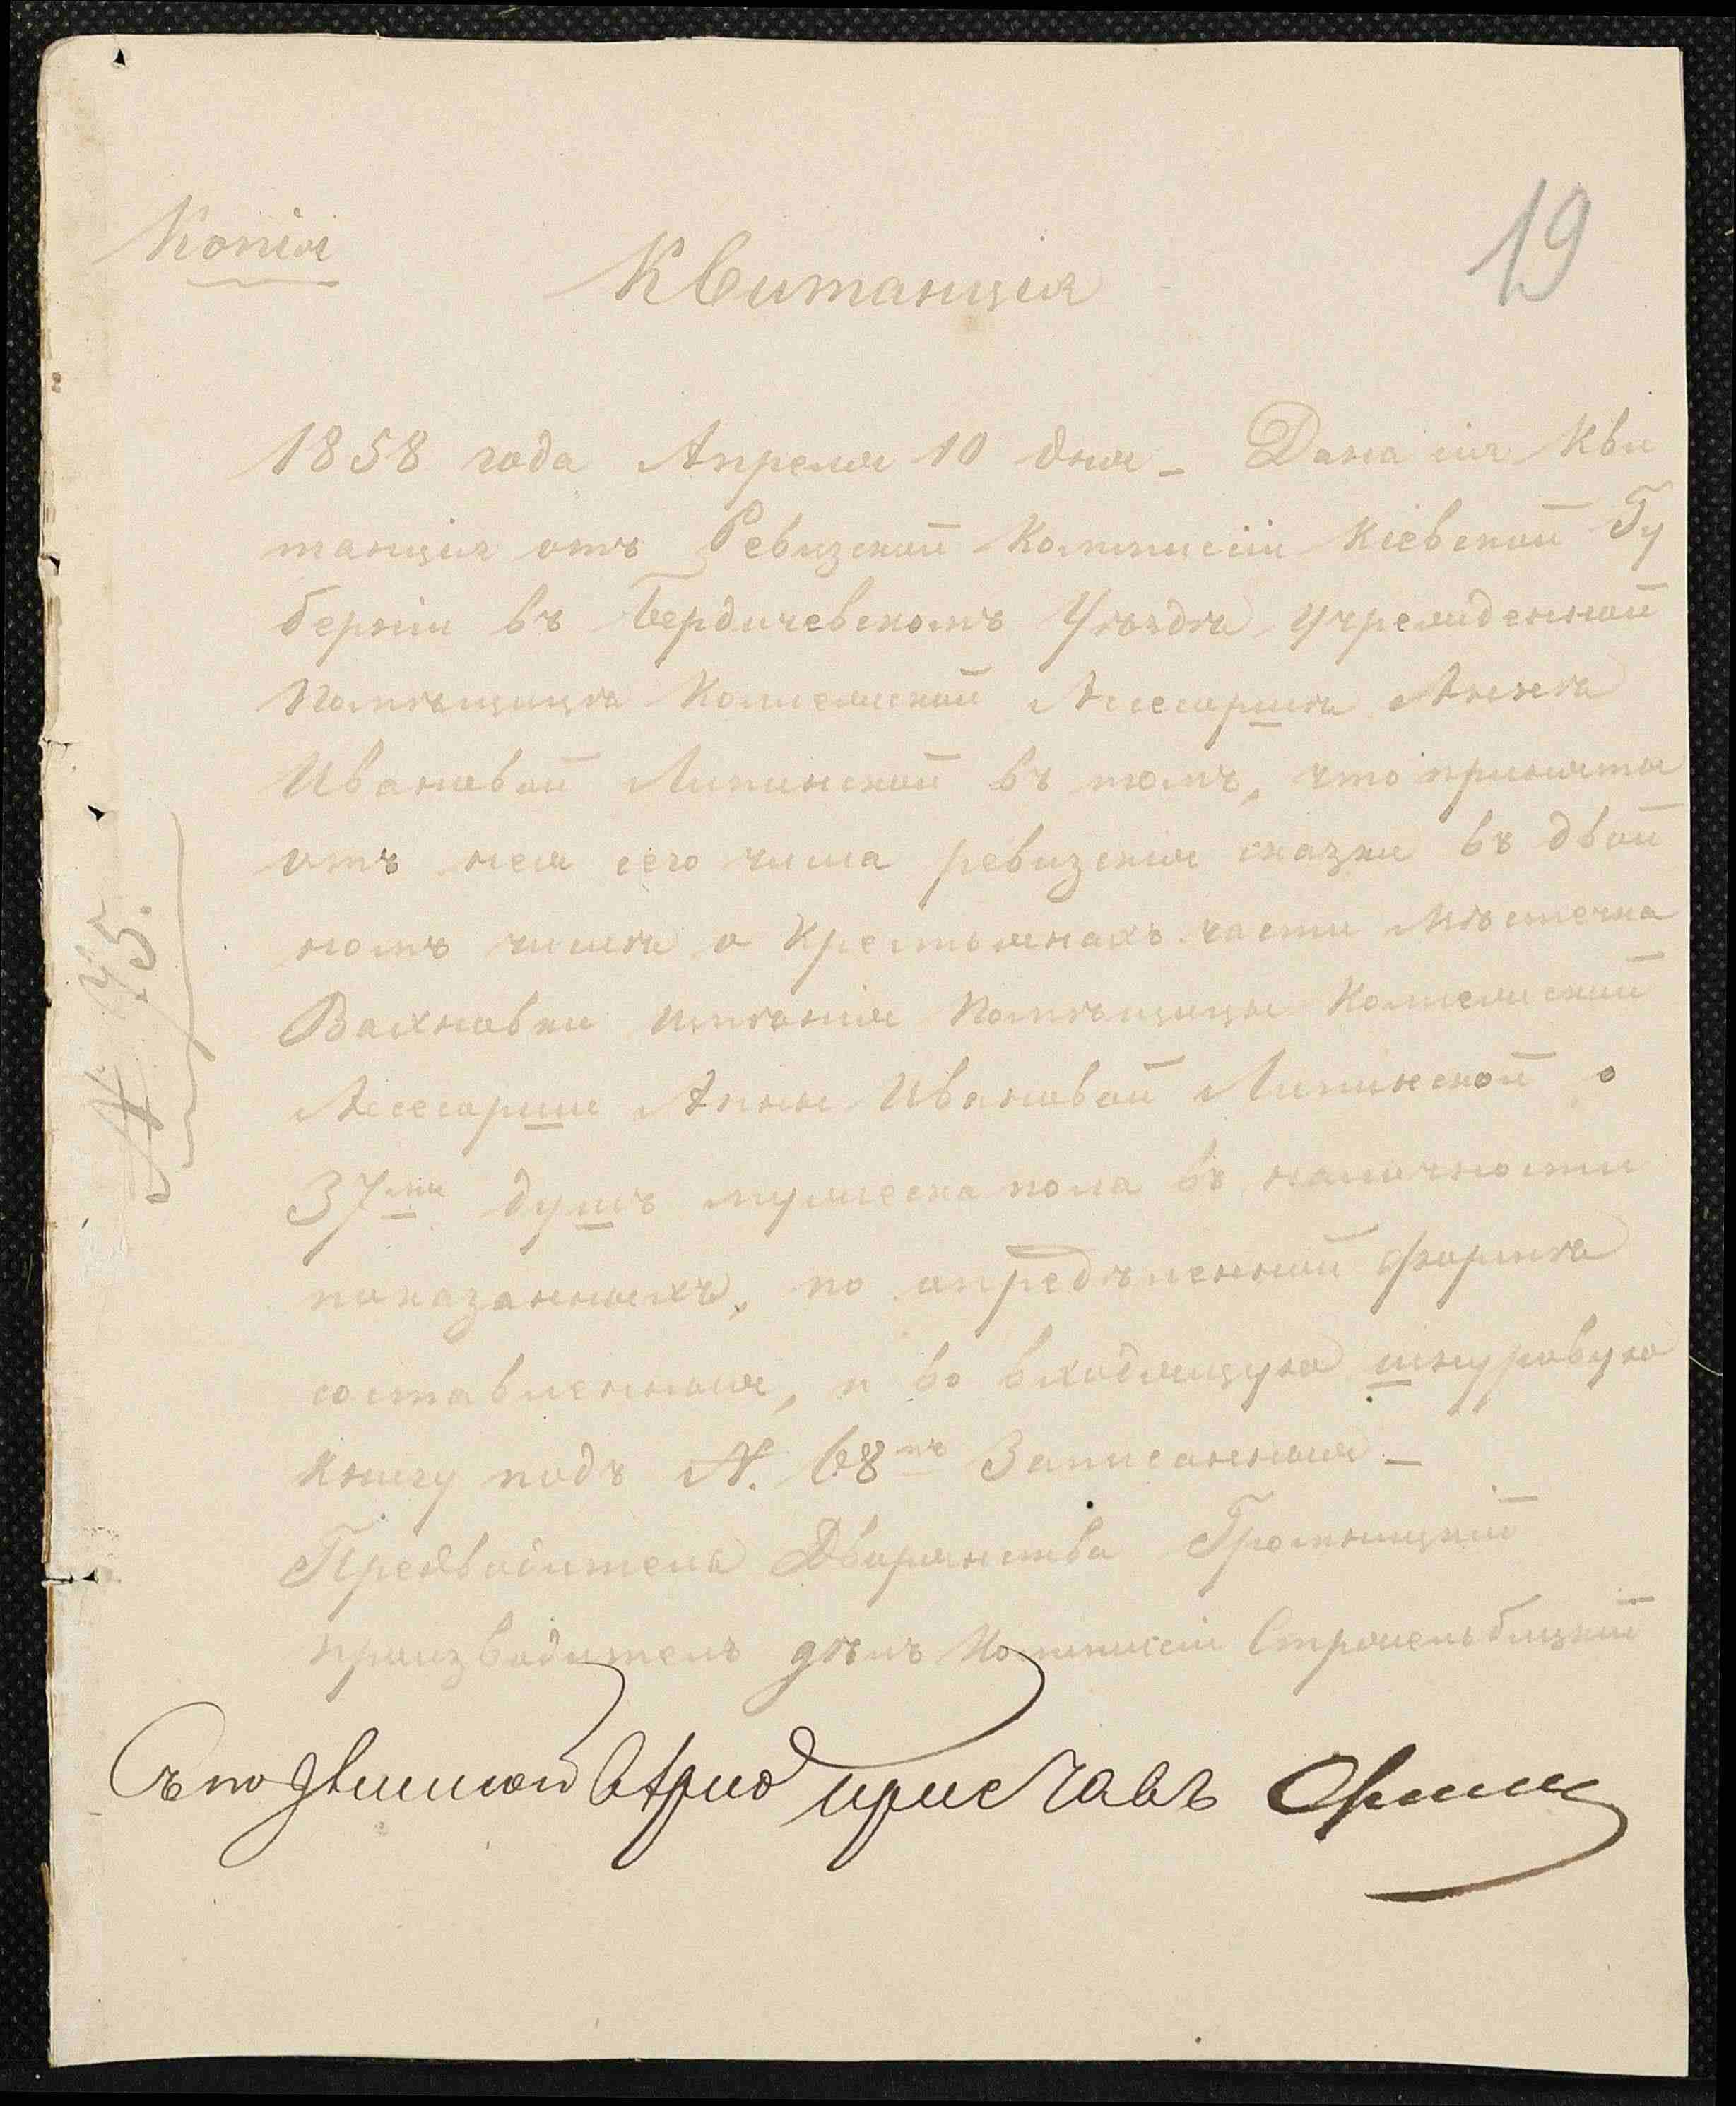 19
Копія
Квитанція
1858 года Апреля 10 дня – Дана сія Кви
танція отъ Ревизской Коммисіи Кіевской Гу
берніи въ Бердичевскомъ Уѣздѣ учрежденной
Помѣщицѣ Коллежской Ассесоршѣ Аннѣ
Ивановой Липинской въ томъ, что приняты
отъ нея сего числа ревизскія сказки въ двой
номъ числѣ о крестьянахъ части мѣстечка
Вахновки имѣнія Помѣщицы Коллежской
Ассесорши Анны Ивановой Липинской о
37ми душъ мужеска пола въ наличности
показанныхъ, по опредѣленной формѣ
составленныя, и во входящую шнуровую
книгу подъ N. 68мъ Записанныя –
Предводитель Дворянства Громницкій
производитель дѣлъ Коммисіи
Съ подлинной вѣрно приставъ
N. 75.